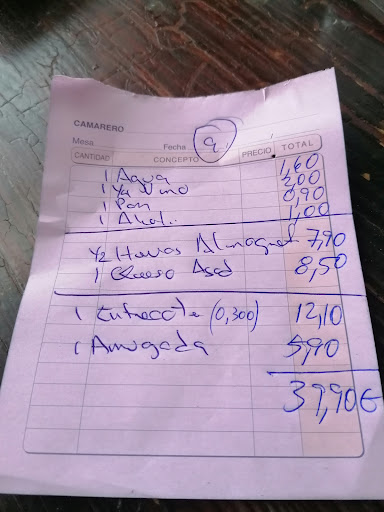 CAMARERO
Mesa Fecha 9
CANTIDAD CONCEPTO PRECIO TOTAL
1 Agua 1,60
1 Ya Vino 2,00
1 Pan 0,90
1 1,00
1/2 Huevos 7,90
1 Queso Asad 8,50
1 Entrecote (0,300) 12,10
1 5,90
39,90€